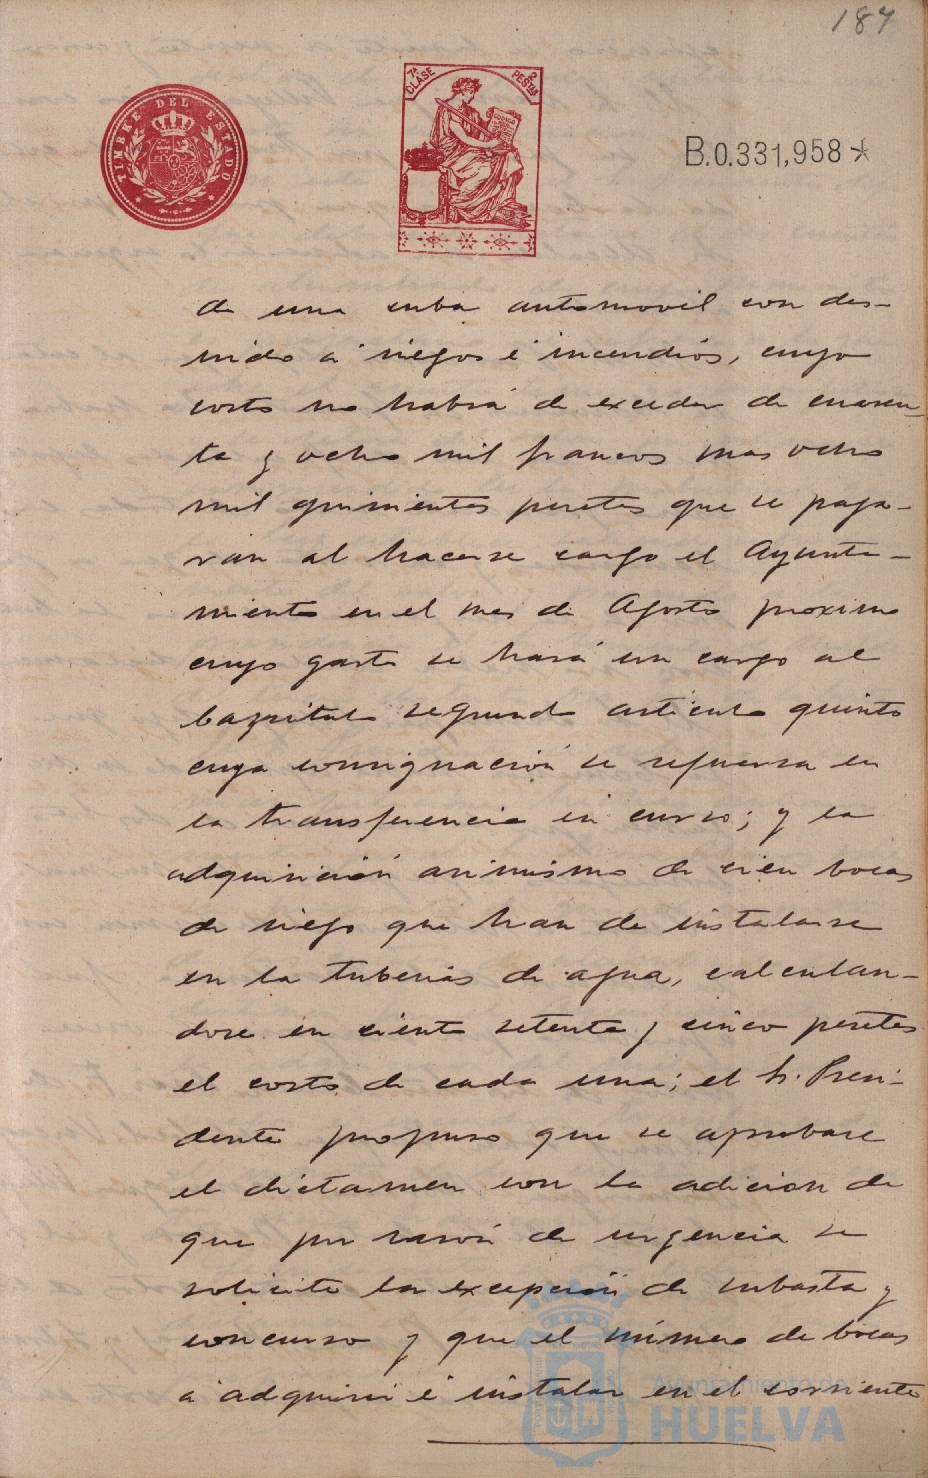 187
TIMBRE DEL ESTADO
7ª CLASE
2 PESETAS
B.0.331,958*
de una cuba automovil con des-
nido á riegos é incendios, cuyo
costo no habrá de exceder de cuaren-
ta y ocho mil francos mas ocho
mil quinientas pesetas que se paga-
ran al hacerse cargo el Ayunta-
miento en el mes de Agosto proximo
cuyo gasto se hará un cargo al
Capitulo segundo articulo quinto
cuya consignación se refuerza en
la transferencia en curso; y la
adquisición asimismo de cien bocas
de riego que han de instalarse
en la tuberias de agua, calculan-
dose en ciento setenta y cinco pesetas
el costo de cada una; el Sr. Presi-
dente propuso que se aprobase
el dictamen con la adicion de
que por razón de urgencia se
solicite la excepción de subasta y
concurso y que el número de bocas
á adquirir é instalar en el corriente
Ayuntamiento de
HUELVA